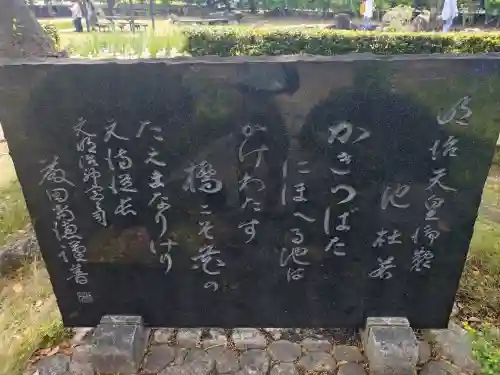 明治天皇御製
池杜若
かきつばた
にほへる池は
かけわたす
橋こそ花の
たえまなりけり
元侍従長
元明治神宮宮司
藤田尚徳謹書